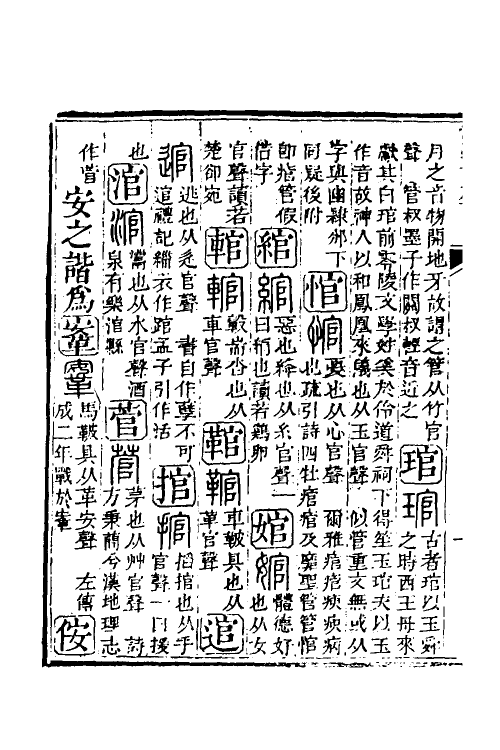 月之音物開地牙故謂之管从竹官
聲 管叔墨子作關叔輕音近之
琯琯
古者琯以玉舜
之時西王母來
獻其白琯前零陵文學姓奚於伶道舜祠下得笙玉琯夫以玉
作音故神人以和鳳凰來儀也从玉官聲 似管重文無或从
字與幽隸邠下
同疑後附
悺悺
憂也从心官聲 爾雅痯痯瘐瘐病
也疏引詩四牡痯痯及靡聖管管悺
即痯管假
借字
綰綰
惡也絳也从糸官聲一
曰綃也讀若雞卵
婠婠
體德好
也从女
官聲讀若
楚卻宛
輨輨
轂耑沓也从
車官聲
䩪䩪
車鞁具也从
革官聲
逭
逭
逃也从辵官聲 書自作孽不可
逭禮記緇衣作踰孟子引作活
捾捾
搯捾也从手
官聲一曰援
也
涫涫
㶣也从水官聲酒
泉有樂涫縣
菅菅
茅也从艸官聲 詩
方秉蕑今漢地理志
作菅
安之諧爲
鞌鞌
馬鞁具从革安聲 左傳
成二年戰於鞌
侒